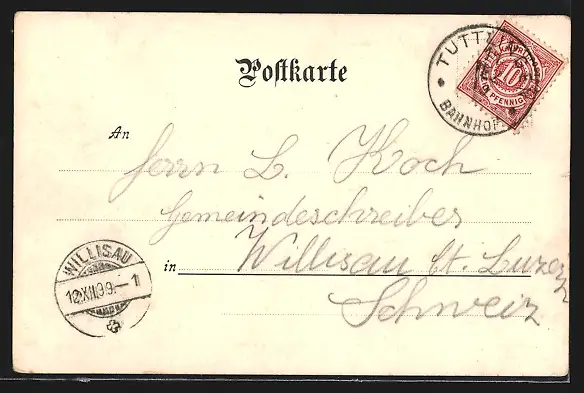 Postkarte
TUTTL
BAHNHOF
10
PFENNIG
An
Herrn L. Koch
Gemeindeschreiber
in Willisau Ct. Luzern
Schweiz
WILLISAU
XII.99.-1